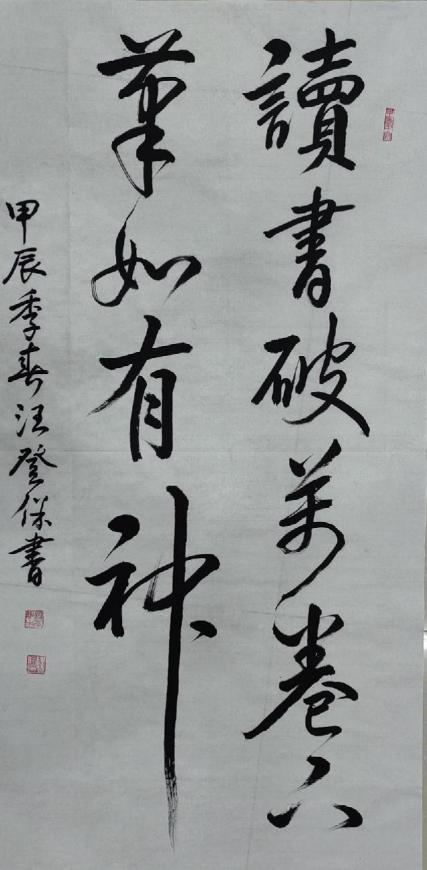 讀書破萬卷下
筆如有神
甲辰季春汪登保書